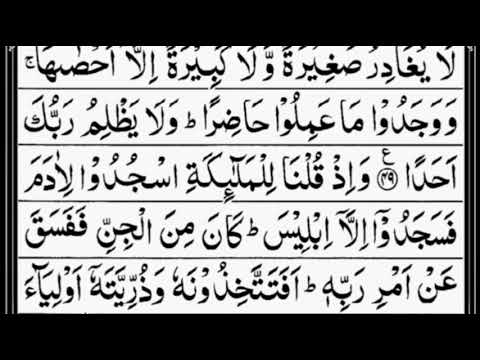 لَا يُغَادِرُ صَغِيْرَةً وَّلَا كَبِيْرَةً اِلَّاۤ اَحْصٰىهَا ۚ
وَوَجَدُوْا مَا عَمِلُوْا حَاضِرًا ؕ وَلَا يَظْلِمُ رَبُّكَ
اَحَدًا ﴿۴۹﴾ ع وَاِذْ قُلْنَا لِلْمَلٰٓئِكَةِ اسْجُدُوْا لِاٰدَمَ
فَسَجَدُوْۤا اِلَّاۤ اِبْلِيْسَ ؕ كَانَ مِنَ الْجِنِّ فَفَسَقَ
عَنْ اَمْرِ رَبِّهٖ ؕ اَفَتَتَّخِذُوْنَهٗ وَذُرِّيَّتَهٗۤ اَوْلِيَآءَ